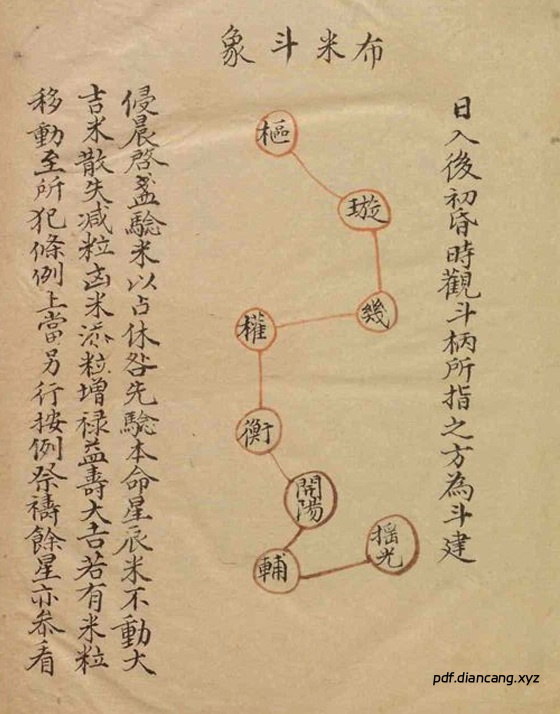 布米斗象
日入後初昏時觀斗柄所指之方為斗建
樞
璇
幾
權
衡
開陽
輔
搖光
侵晨啓盞驗米以占休咎先驗本命星辰米不動大
吉米散失减粒凶米添粒增禄益壽大吉若有米粒
移動至所犯條例上當另行按例祭禱餘星亦叅看
pdf.diancang.xyz